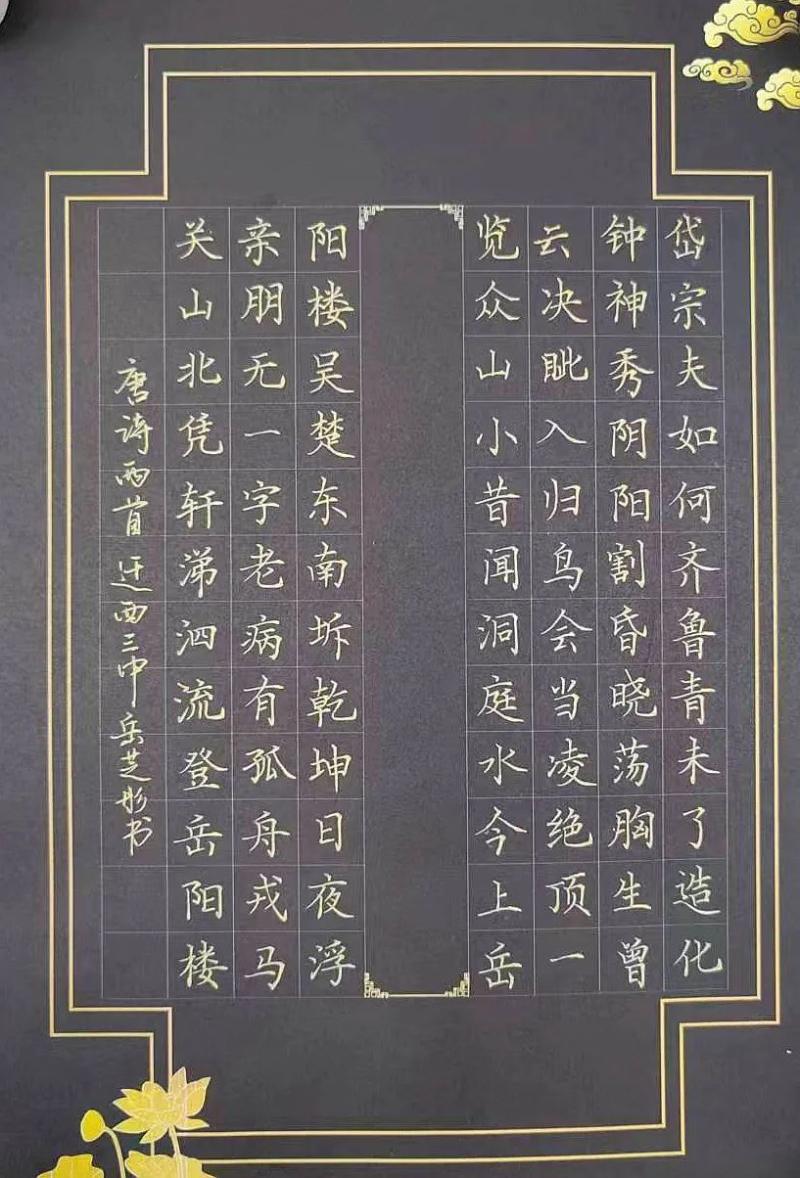 岱宗夫如何齐鲁青未了造化
钟神秀阴阳割昏晓荡胸生曾
云决眦入归鸟会当凌绝顶一
览众山小昔闻洞庭水今上岳
阳楼吴楚东南坼乾坤日夜浮
亲朋无一字老病有孤舟戎马
关山北凭轩涕泗流登岳阳楼
唐诗两首迁西三中岳芝彤书